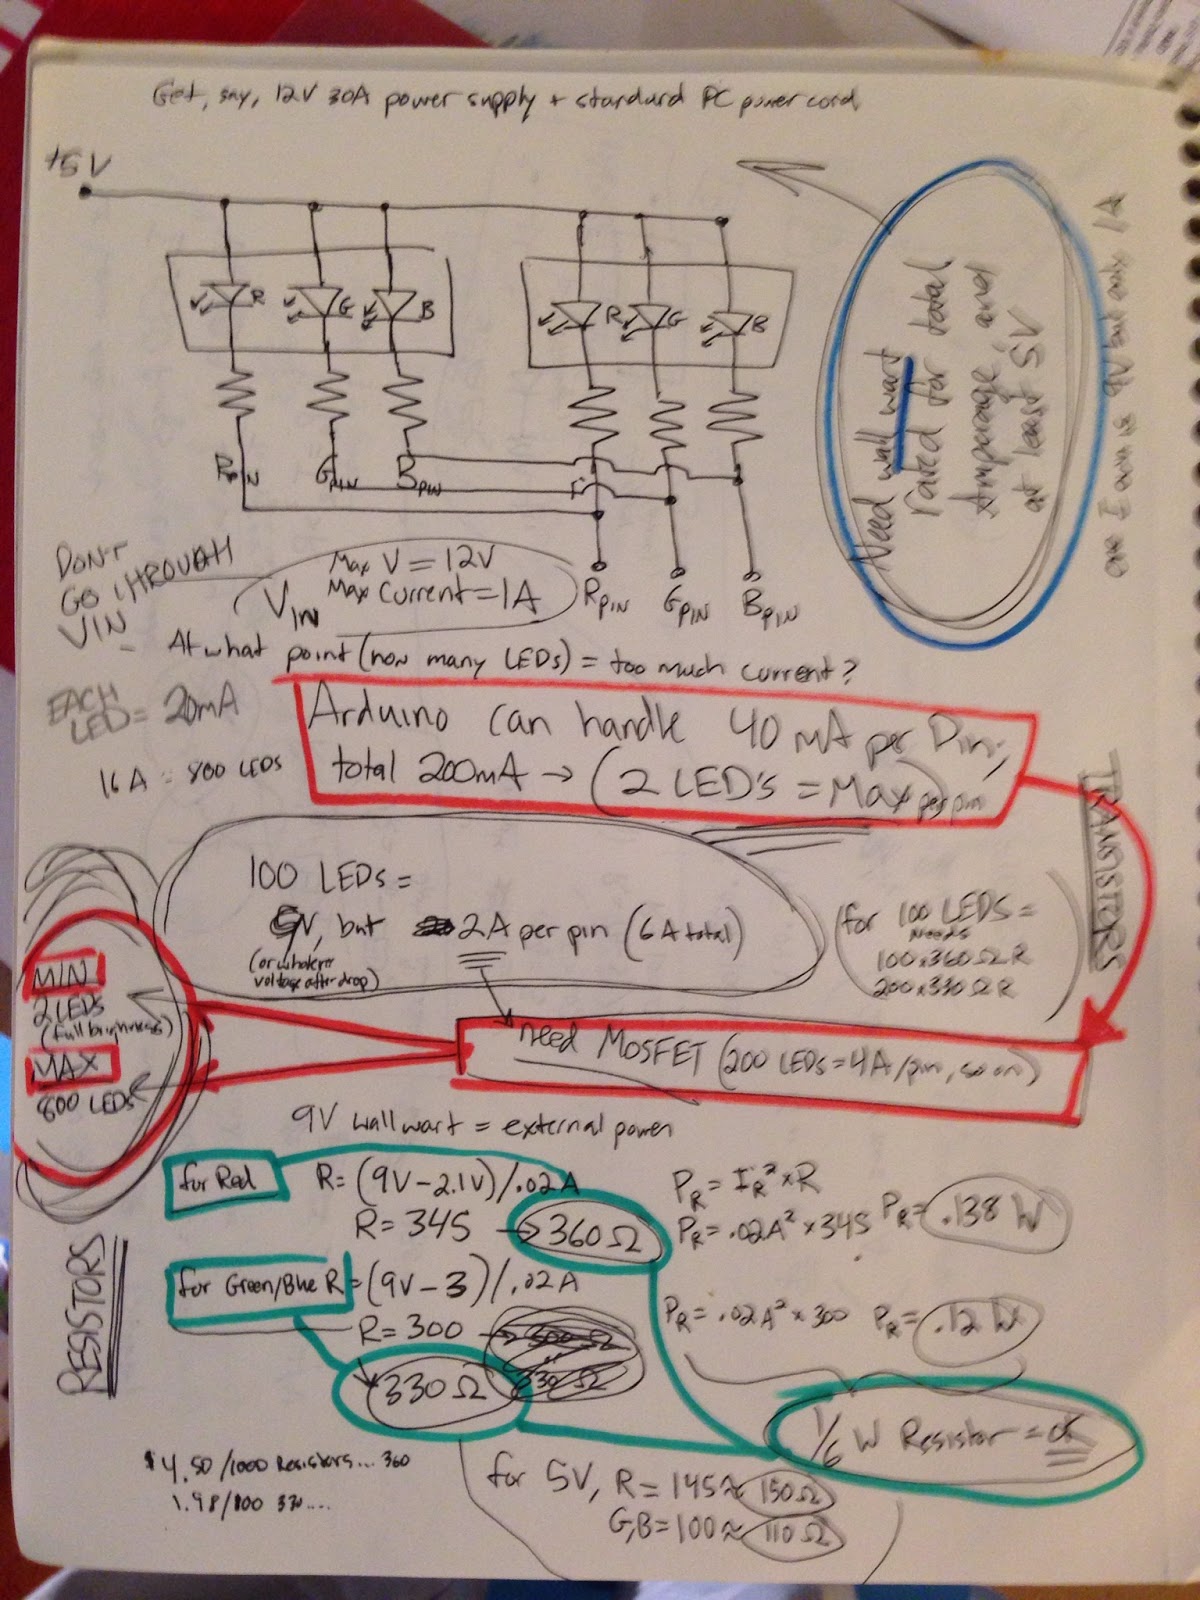 Get, say, 12V 30A power supply + standard PC power cord
+5V
R
G
B
R
G
B
RPIN
GPIN
BPIN
Need wall wart
rated for total
Amperage, and
at least 5V
one I own is 9V but only 1A
DON'T
GO THROUGH
VIN
VIN
Max V = 12V
Max Current = 1A
RPIN
GPIN
BPIN
At what point (how many LEDs) = too much current?
EACH
LED = 20mA
16A = 800 LEDs
Arduino can handle 40 mA per Din;
total 200mA → (2 LED's = Max) per pin
TRANSISTORS
100 LEDs =
5V, but 2A per pin (6A total)
(or whatever
voltage after drop)
(for 100 LEDS =
needs
100x360Ω R
200x330Ω R
MIN
2 LEDs
(full brightness)
MAX
800 LEDs
need MOSFET (200 LEDs = 4A/pin, so on)
9V wall wart = external power
for Red
R = (9V-2.1V)/.02A
R = 345 → 360Ω
PR = IR² x R
PR = .02A² x 345
PR = .138 W
for Green/Blue R = (9V-3)/.02A
R = 300 → 300Ω
330Ω
330Ω
PR = .02A² x 300
PR = .12 W
RESISTORS
1/6 W Resistor = ok
$4.50/1000 Resistors... 360
1.98/100 330....
for 5V, R = 145 ≈ 150Ω
G,B = 100 ≈ 110Ω